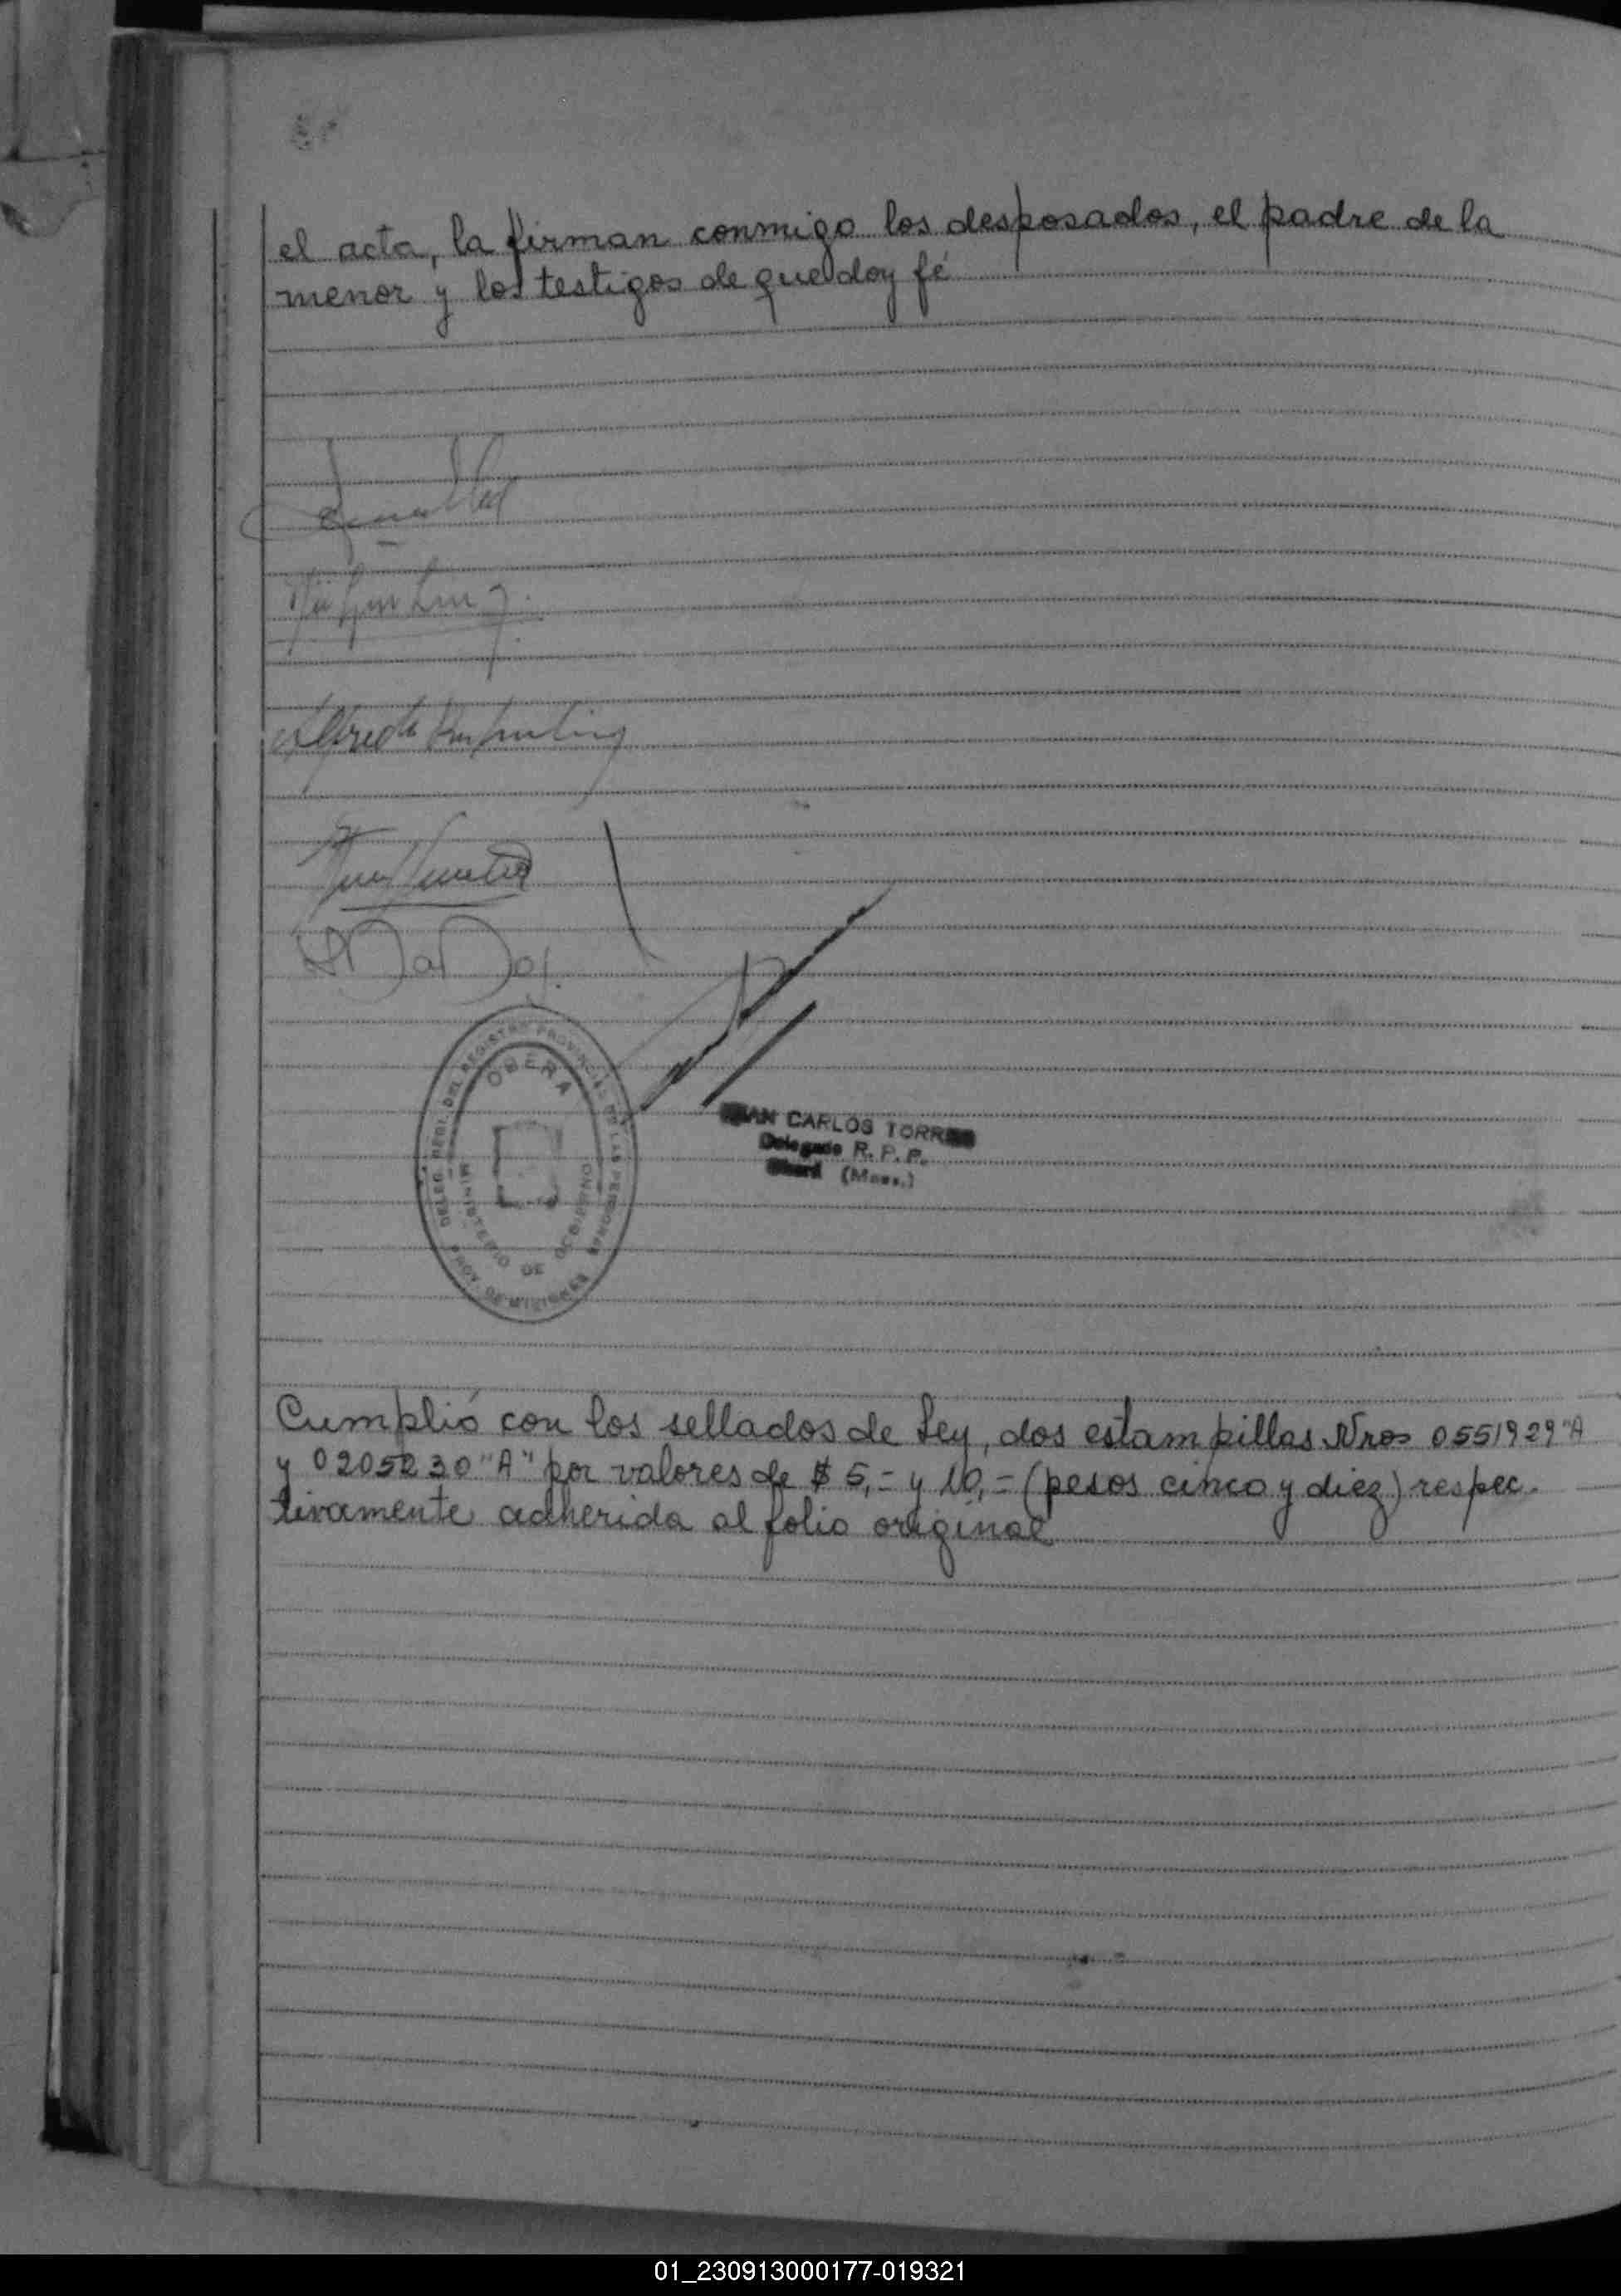 el acta, la firman conmigo los desposados, el padre de la
menor y los testigos de que doy fé
Alfredo
DELEG. REGI. DEL REGISTRO PROVINCIAL DE LAS PERSONAS
OBERA
MINISTERIO DE GOBIERNO
PROV. DE MISIONES
JUAN CARLOS TORRES
Delegado R. P. P.
Oberá (Mnes.)
Cumplió con los sellados de Ley, dos estampillas Nros 0551929 "A
y 0205230 "A" por valores de $ 5,- y 10,- (pesos cinco y diez) respec-
tivamente adherida al folio original
01_230913000177-019321